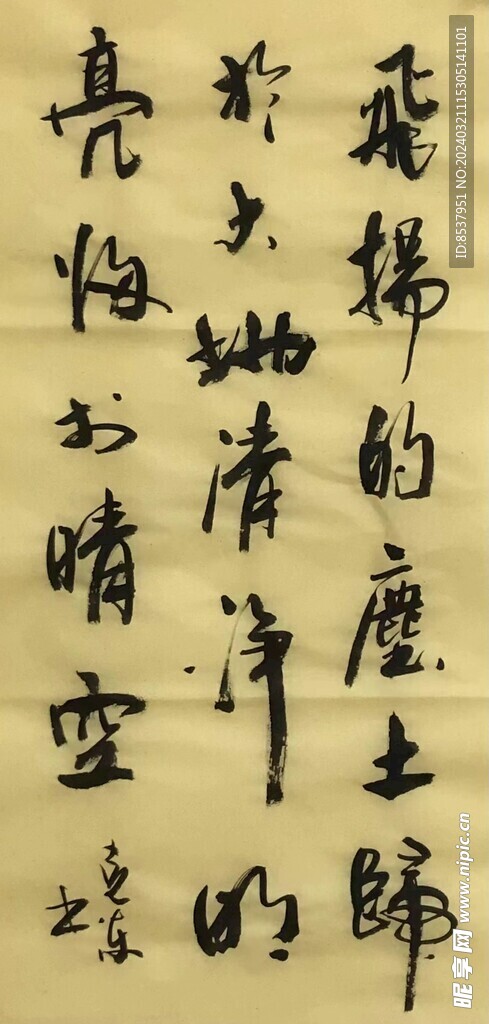 飛揚的塵土歸
於大地清淨明
亮悔於晴空
克東书
ID:8537951 NO:20240321115305141101
昵享网 www.nipic.cn